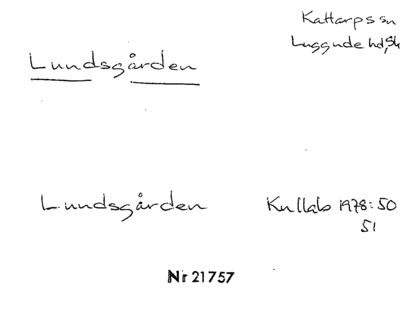 Kattarps sn
Luggude hd, Sk
Lundsgården
Lundsgården
Kullabo 1978:50
51
Nr 21757